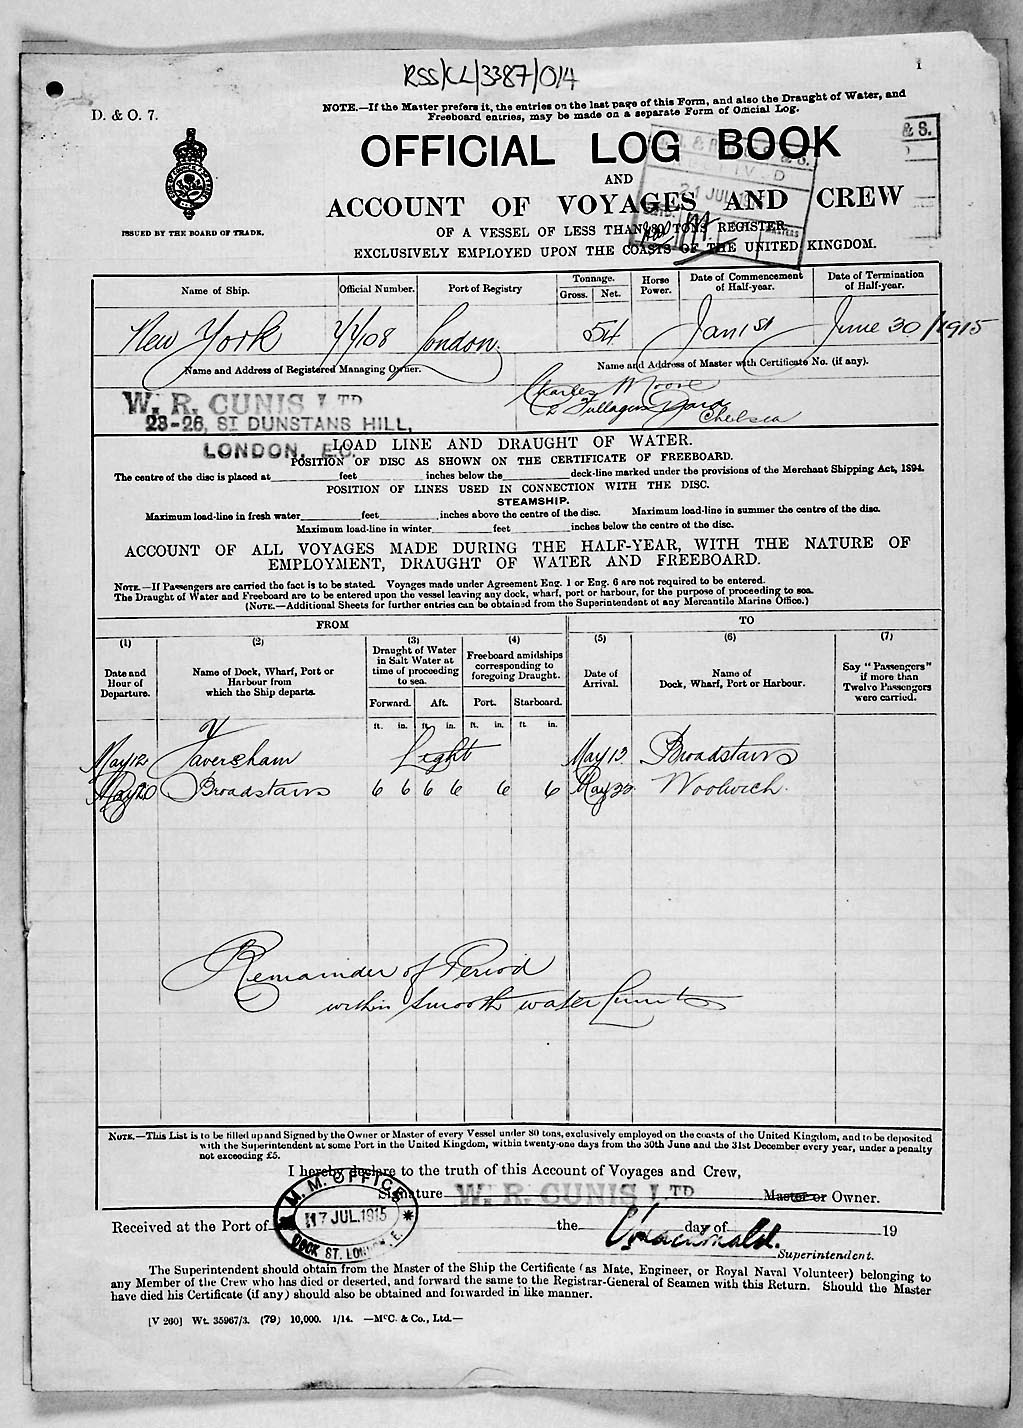 RSS/CL/3387/014
1
D. & O. 7.
NOTE.—If the Master prefers it, the entries on the last page of this Form, and also the Draught of Water, and
Freeboard entries, may be made on a separate Form of Official Log.
OFFICIAL LOG BOOK
AND
ACCOUNT OF VOYAGES AND CREW
21 JUL
& S.
ISSUED BY THE BOARD OF TRADE.
OF A VESSEL OF LESS THAN 80 TONS REGISTER
EXCLUSIVELY EMPLOYED UPON THE COASTS OF THE UNITED KINGDOM.
Name of Ship. Official Number. Port of Registry Tonnage. Gross. Net. Horse Power. Date of Commencement of Half-year. Date of Termination of Half-year.
New York 77108 London. 54 Jan 1st June 30/1915
Name and Address of Registered Managing Owner. Name and Address of Master with Certificate No. (if any).
W. R. CUNIS LTD
23-26, ST DUNSTANS HILL,
LONDON, E.C.
Charles Moore
Yard
Chelsea
LOAD LINE AND DRAUGHT OF WATER.
POSITION OF DISC AS SHOWN ON THE CERTIFICATE OF FREEBOARD.
The centre of the disc is placed at feet inches below the deck-line marked under the provisions of the Merchant Shipping Act, 1894.
POSITION OF LINES USED IN CONNECTION WITH THE DISC.
STEAMSHIP.
Maximum load-line in fresh water feet inches above the centre of the disc. Maximum load-line in summer the centre of the disc.
Maximum load-line in winter feet inches below the centre of the disc.
ACCOUNT OF ALL VOYAGES MADE DURING THE HALF-YEAR, WITH THE NATURE OF
EMPLOYMENT, DRAUGHT OF WATER AND FREEBOARD.
NOTE.—If Passengers are carried the fact is to be stated. Voyages made under Agreement Eng. 1 or Eng. 6 are not required to be entered.
The Draught of Water and Freeboard are to be entered upon the vessel leaving any dock, wharf, port or harbour, for the purpose of proceeding to sea.
(NOTE.—Additional Sheets for further entries can be obtained from the Superintendent of any Mercantile Marine Office.)
FROM TO
(1) (2) (3) (4) (5) (6) (7)
Date and Hour of Departure. Name of Dock, Wharf, Port or Harbour from which the Ship departs. Draught of Water in Salt Water at time of proceeding to sea. Freeboard amidships corresponding to foregoing Draught. Date of Arrival. Name of Dock, Wharf, Port or Harbour. Say "Passengers" if more than Twelve Passengers were carried.
Forward. Aft. Port. Starboard.
ft. in. ft. in. ft. in. ft. in.
May 12 Faversham Light May 13 Broadstairs
May 20 Broadstairs 6 6 6 6 6 6 May 22 Woolwich.
Remainder of Period
within smooth water limits
NOTE.—This List is to be filled up and Signed by the Owner or Master of every Vessel under 80 tons, exclusively employed on the coasts of the United Kingdom, and to be deposited
with the Superintendent at some Port in the United Kingdom, within twenty-one days from the 30th June and the 31st December every year, under a penalty
not exceeding £5.
I hereby declare to the truth of this Account of Voyages and Crew,
Signature W. R. CUNIS LTD Master or Owner.
M. M. OFFICE
17 JUL.1915
DOCK ST. LONDON, E.
Received at the Port of the day of 19
Superintendent.
The Superintendent should obtain from the Master of the Ship the Certificate (as Mate, Engineer, or Royal Naval Volunteer) belonging to
any Member of the Crew who has died or deserted, and forward the same to the Registrar-General of Seamen with this Return. Should the Master
have died his Certificate (if any) should also be obtained and forwarded in like manner.
[V 260] Wt. 35967/3. (79) 10,000. 1/14. —McC. & Co., Ltd.—